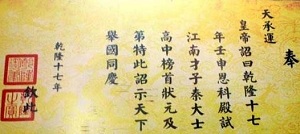 奉
天承運
皇帝詔曰乾隆十七
年壬申恩科殿試
江南才子泰大士
高中榜首狀元及
第特此詔示天下
舉國同慶
欽此
乾隆十七年